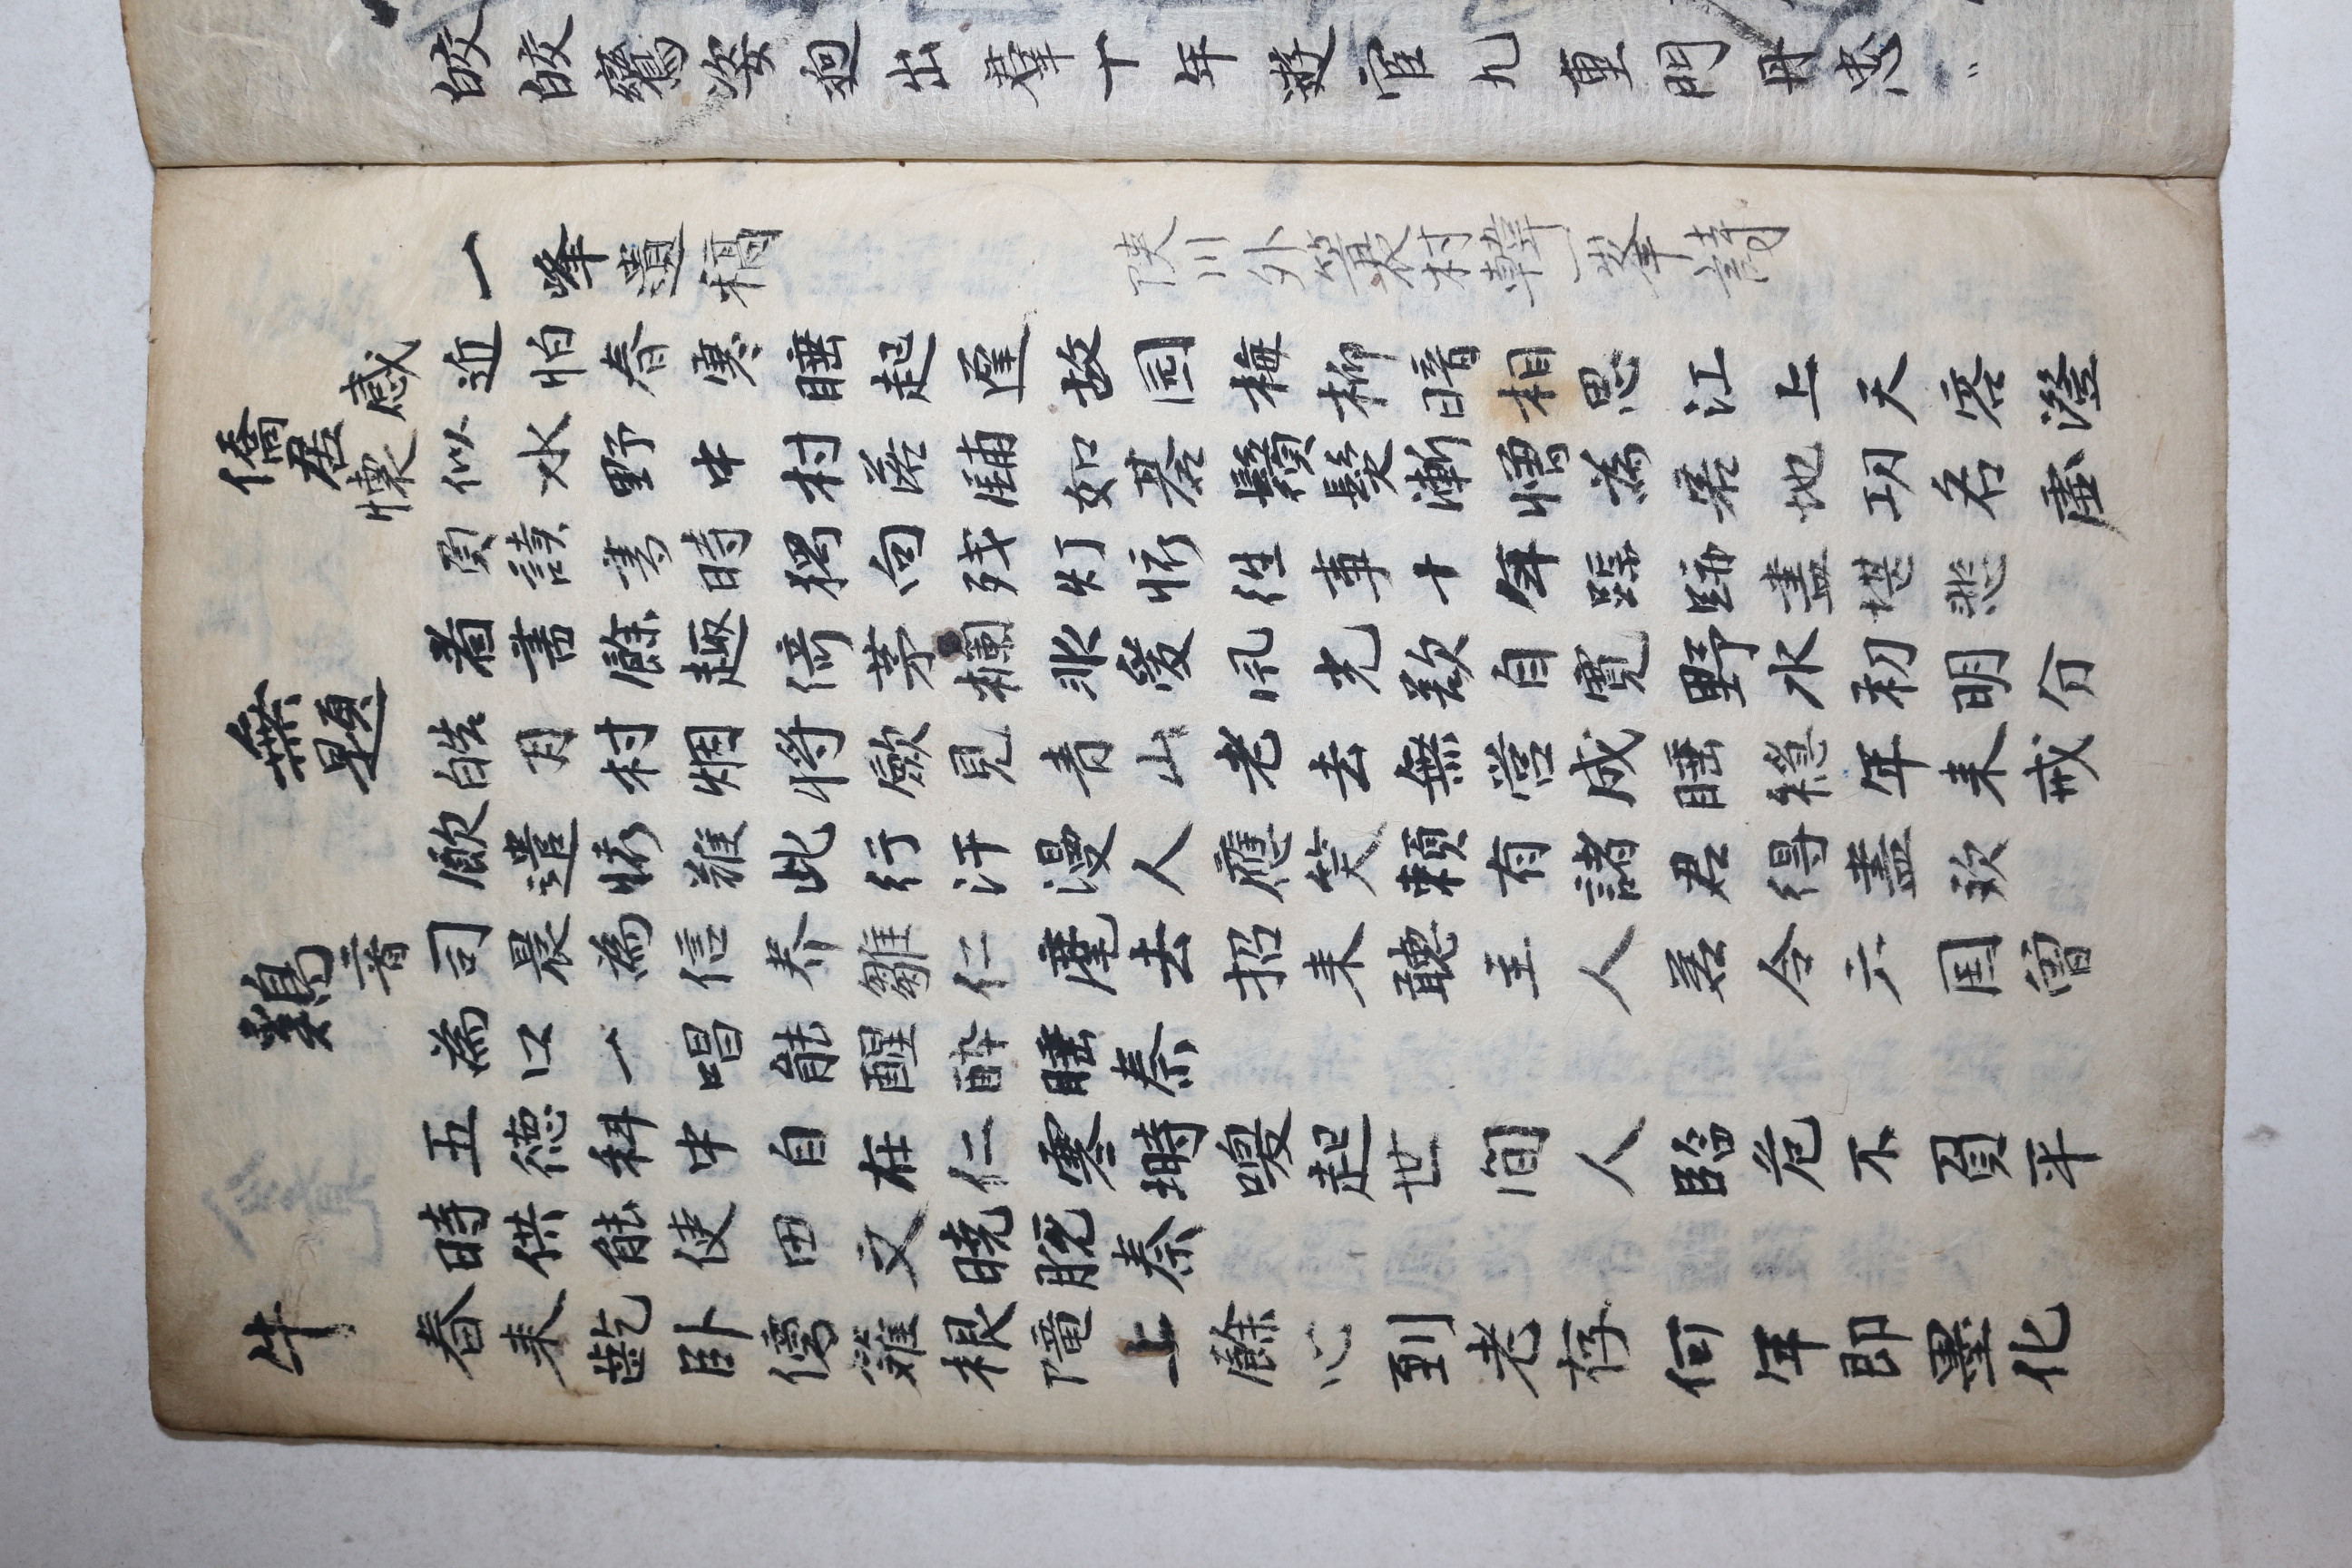 皎皎鸞姿迥出羣十年遊宦九重門丹忠〃
一峰遺稿 陜川外篁村韓一峯詩
僑居感懷
近怕春寒睡起遲故园梅柳暗相思江上天容澄
似水野中村落鋪如碁鬚髮漸憎為客地功名虛
負讀書時獨向残灯愱徃事十年踪跡盡堪悲
看書餘趣倚茅欄非愛風光歎自寬野水初明分
無題
皓月村烟將歛見青山老去無营成睡穏年来戒
飲遣懷難此行汗漫人應笑賴有諸君得盡欢
鷄二首
司晨為信养雛仁麾去招来聽主人若令六国曾
為口一唱能醒醉睡秦
五德科中自在仁寒塒嘐起世间人臨危不負平
時供能使田文曉脫秦
牛
春来齕卧傍籬根隴上餘心到老存何年即墨化